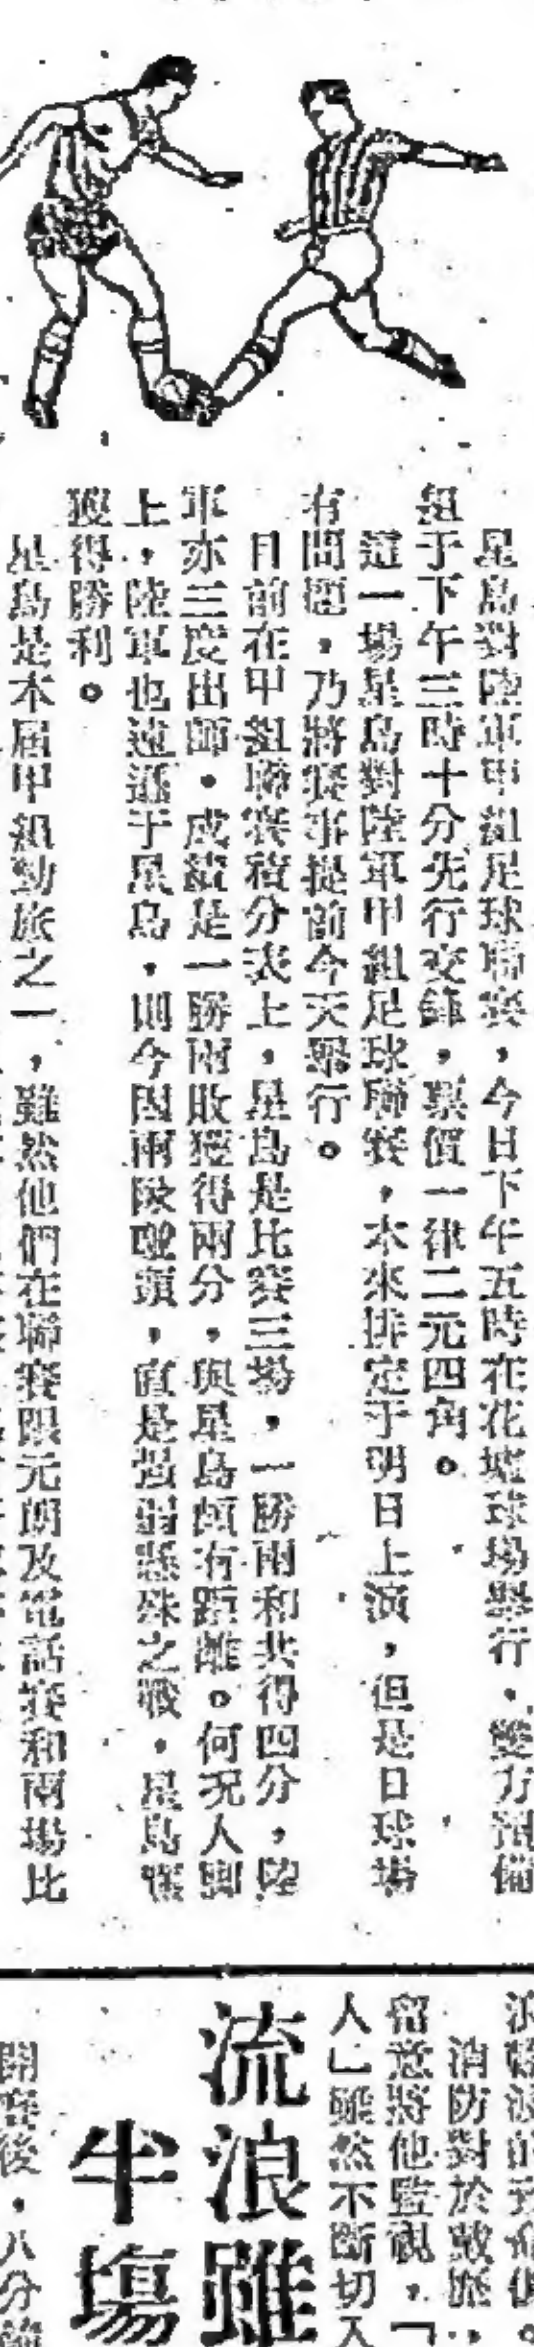 星島對陸軍甲組足球聯賽，今日下午五時在花墟球場舉行。雙方預備
組于下午三時十分先行交鋒，票價一律二元四角。
這一場星島對陸軍甲組足球聯賽，本來排定于明日上演，但是日球場
有問題，乃將賽事提前今天舉行。
目前在甲組聯賽積分表上，星島是比賽三場，一勝兩和共得四分，陸
軍亦三度出師。成績是一勝兩敗獲得兩分，與星島頗有距離。何況人脚
上，陸軍也遠遜于星島，則今因兩陂碰頭，直是强弱懸殊之戰，星島應
獲得勝利。
星島是本届甲組勁旅之一，雖然他們在聯賽跟元朗及電話賽和兩場比
消防對於敵
留意將他監視，「
人」雖然不斷切入
流浪雖
半場
開賽後，八分鐘